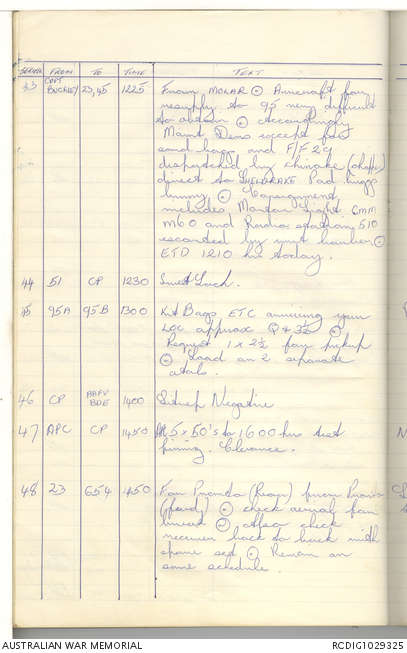 SERIAL FROM TO TIME TEXT
43 CAPT BUCKLEY 23,45 1225 From MOLAR ⊙ Aircraft for
resupply to 95 very difficult
to obtain ⊙ Accordingly
Maint Dems except for
sand bags and F/F 29
dispatched by Chinoke (chopper)
direct to SHELDRAKE Pad
⊙ Consignment
includes Mortar Sight 6mm
M60 and Radio station 510
escorted by unit ⊙
ETD 1210 hrs today.
44 51 CP 1230 Sunset Loch.
45 95A 95B 1300 Kit Bags ETC arriving your
Loc approx Q+35 ⊙
Request 1 x 2½ for pickup
⊙ Load on 2 separate
stals.
46 CP BDE 1400 Sitrep Negative
47 APC CP 1450 5 x 50's to 1600 hrs test
firing. Clearance.
48 23 654 1450 For Pronto (Rear) from Pronto
(fwd) ⊙ check aerial for
break ⊙ Also check
receiver back to back with
spare set ⊙ Remain on
same schedule.
AUSTRALIAN WAR MEMORIAL
RCDIG1029325